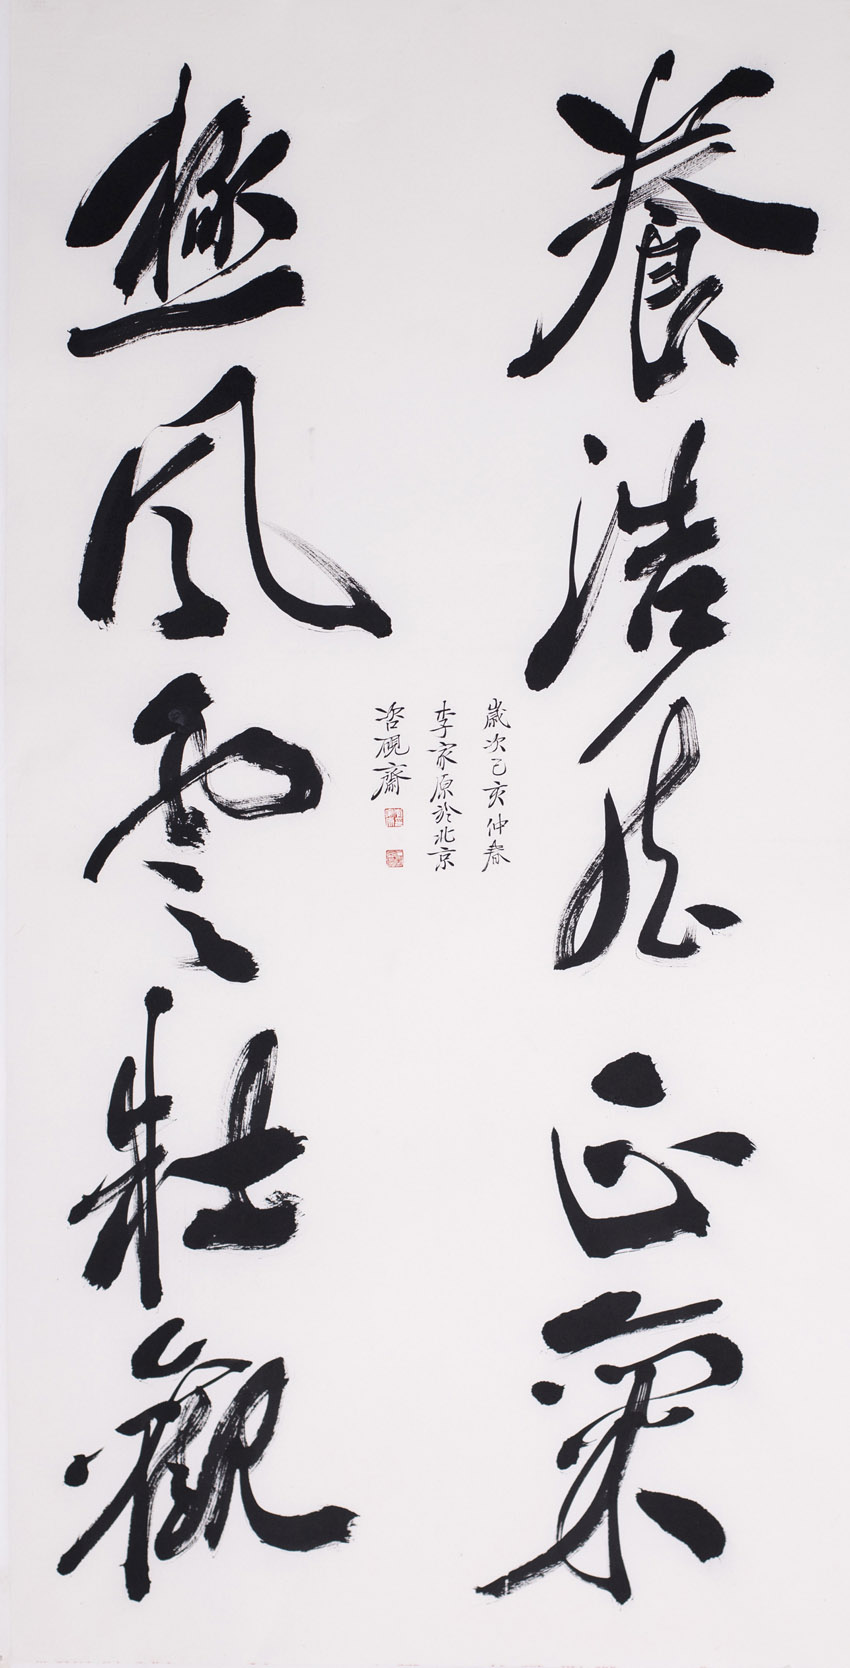 養浩然正氣
極風雲壯觀
歲次己亥仲春
李家原於北京
硯齋